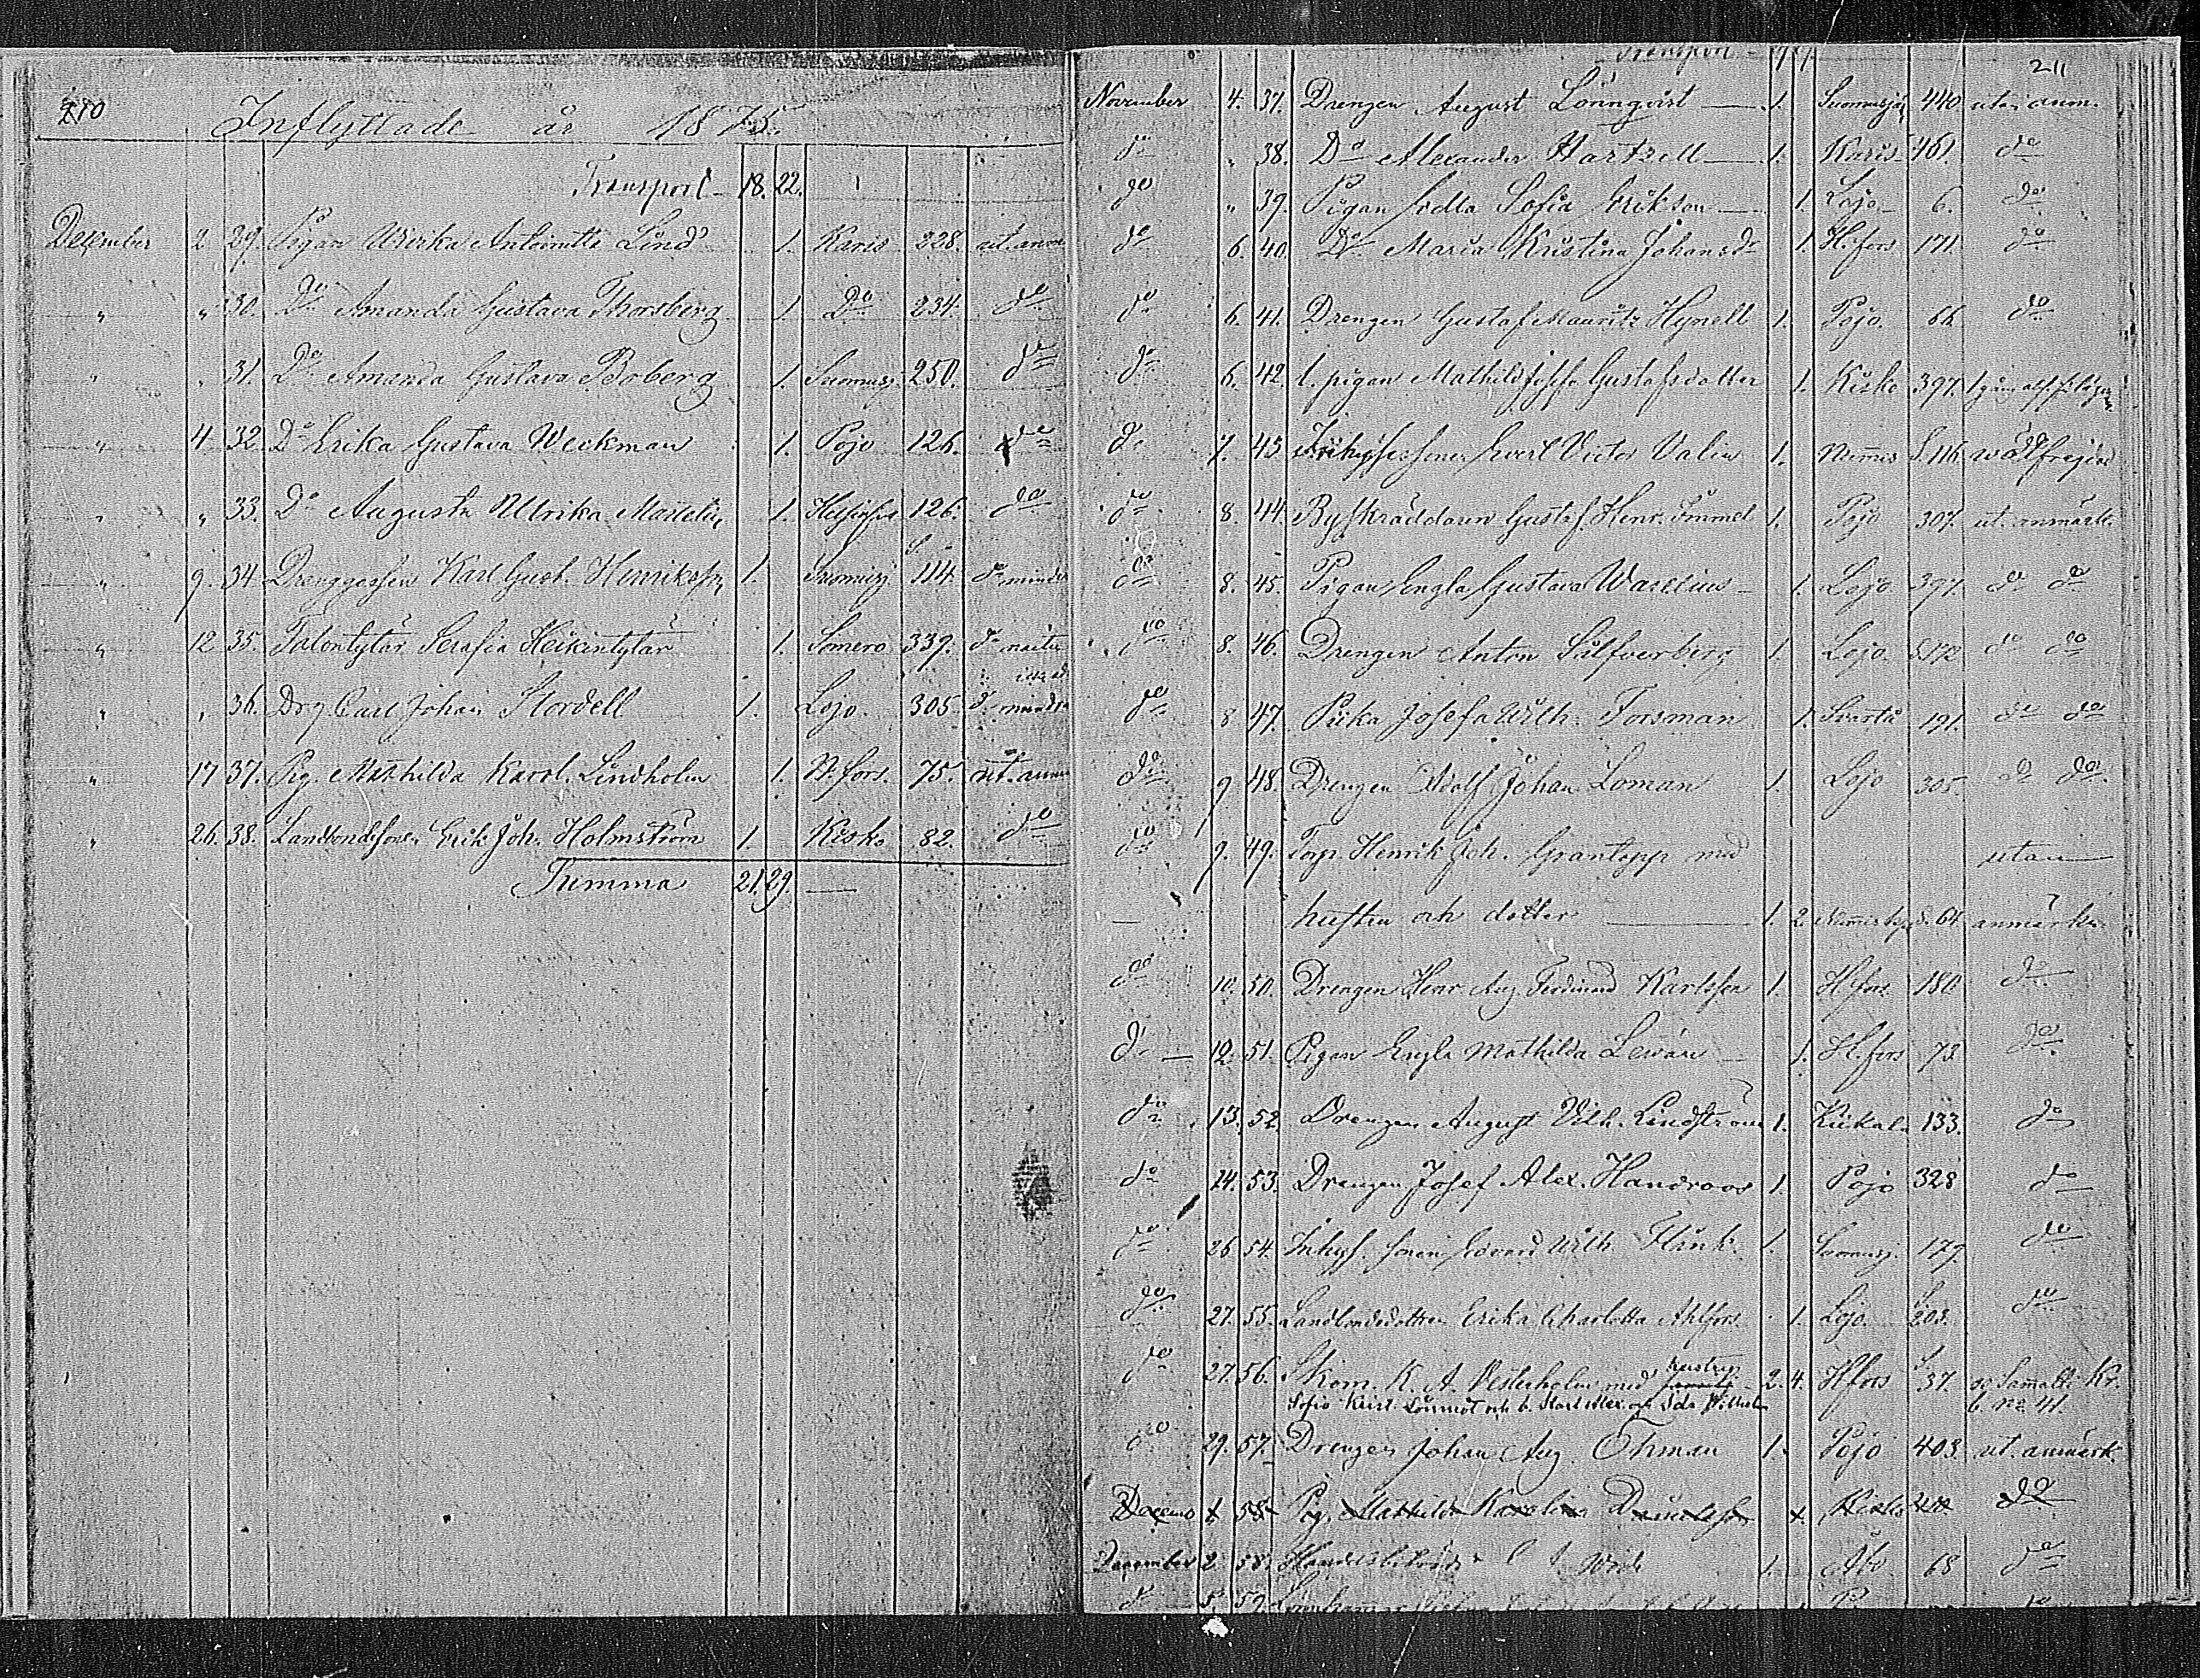 210
Inflyttade år 1875.
Transport 18. 22.
December 2 29. Pigan Ulrika Antoinette Lind 1. Karis 228. ut. anm
" " 30. Do Amanda Gustava Thorsberg 1. Do 234. do
" " 31. Do Amanda Gustava Boberg 1. Suomusj. 250. do
" 4. 32. Do Erika Gustava Weckman 1. Pojo 126. do
" " 33. Do Augusta Ulrika 1. Helsinfors 126. do
" 9. 34 Drenggossen Karl Gust. Henriksson 1. Suomusj S. 114. do
" 12 35. Talontytär Serafia Heikintytär 1. Somero 339. do
" " 36. Drg. Carl Johan Nordell 1. Lojo. 305. do
" 17 37. Pig. Mathilda Karol. Lindholm 1. H.fors. 75. ut. anm
" 26. 38. Landbondeson Erik Joh. Holmström 1. Kisko 82. do
Summa 21. 29.
211
Transport
November 4. 37. Drengen August Lönnqvist 1. Suomusj. 440 utan anm.
do " 38. Do Alexander Hartzell 1. Karis 461. do
do " 39. Pigan Sofia Erikson 1. Lojo 6. do
do 6. 40. Do Maria Kristina Johansdr 1. H.fors 171. do
do 6. 41. Drengen Gustaf Mauritz Hynell 1. Pojo. 66. do
do 6. 42. Pigan Mathilda Gustafsdotter 1. Kisko 397.
do 7. 43 Evert Victor Valin 1. Nummis S. 116 wälfrejdad
do 8. 44. Byskräddaren Gustaf Henr. 1. Pojo 307. ut. anmärk.
do 8. 45. Pigan Engla Gustava Warelius 1. Lojo 397. do do
do 8. 46. Drengen Anton Silfverberg 1. Lojo. do do
do 8 47. Piika Josefa Wilh. Forsman 1. Svartå 191. do do
do 9 48. Drengen Adolf Johan Loman 1. Lojo 305. do do
do 9. 49. Torp. Henrik Joh. Grantopp med utan
hustru och dotter 1. 2. S. 64. anmärkn.
do 10. 50. Drengen Henr. Aug. Ferdinand Karlsson 1. H.fors 180 do
do 12. 51. Pigan Engla Mathilda Lewán 1. H.fors 73. do
do 13. 52. Drengen August Vilh. Lindström 1. Kiikala 133. do
do 14. 53. Drengen Josef Alex. Handroos 1. Pojo 328 do
do 26 54. Inhys. sonen Edvard Wilh. Flink 1. Suomusj. 179. do
do 27. 55. Landbondedottern Erika Charlotta Ahlfors 1. Lojo S. 203. do
do 27. 56. Skom. K. A. Vesterholm med hustru 2. 4. H.fors S. 37.
Sofia Krist. Lönnrot och b. Karl Alex. och Ida Vilhelm.
do 29. 57. Drengen Johan Aug. Öhman 1. Pojo 403. ut. anmärk.
Decemb 1. 58. Pig. Mathilda Karolina Danielsson 1. Kisko do
December 2. 58. 1. Åbo 68 do
do 5. 59.